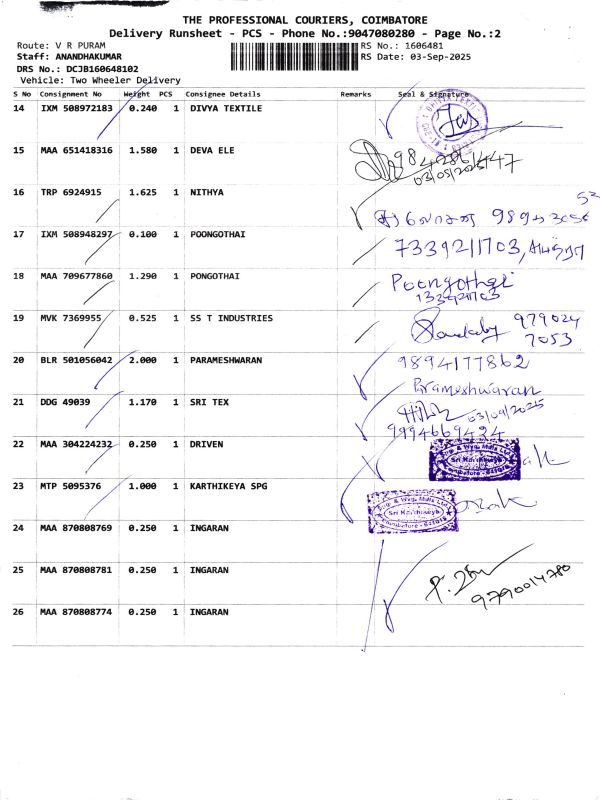 THE PROFESSIONAL COURIERS, COIMBATORE
Delivery Runsheet - PCS - Phone No.:9047080280 - Page No.:2
Route: V R PURAM
RS No.: 1606481
Staff: ANANDHAKUMAR
RS Date: 03-Sep-2025
DRS No.: DCJB160648102
Vehicle: Two Wheeler Delivery
S No Consignment No Weight PCS Consignee Details Remarks Seal & Signature
14 IXM 508972183 0.240 1 DIVYA TEXTILE
15 MAA 651418316 1.580 1 DEVA ELE
03/09/2025
16 TRP 6924915 1.625 1 NITHYA
17 IXM 508948297 0.100 1 POONGOTHAI 7339211703,
18 MAA 709677860 1.290 1 PONGOTHAI Poongothai
19 MVK 7369955 0.525 1 SS T INDUSTRIES 979024
7053
20 BLR 501056042 2.000 1 PARAMESHWARAN 9894177862
Prameshwaran
21 DDG 49039 1.170 1 SRI TEX 03/09/2025
9994669424
22 MAA 304224232 0.250 1 DRIVEN
23 MTP 5095376 1.000 1 KARTHIKEYA SPG
Sri Karthikeya
24 MAA 870808769 0.250 1 INGARAN
25 MAA 870808781 0.250 1 INGARAN
9790014780
26 MAA 870808774 0.250 1 INGARAN